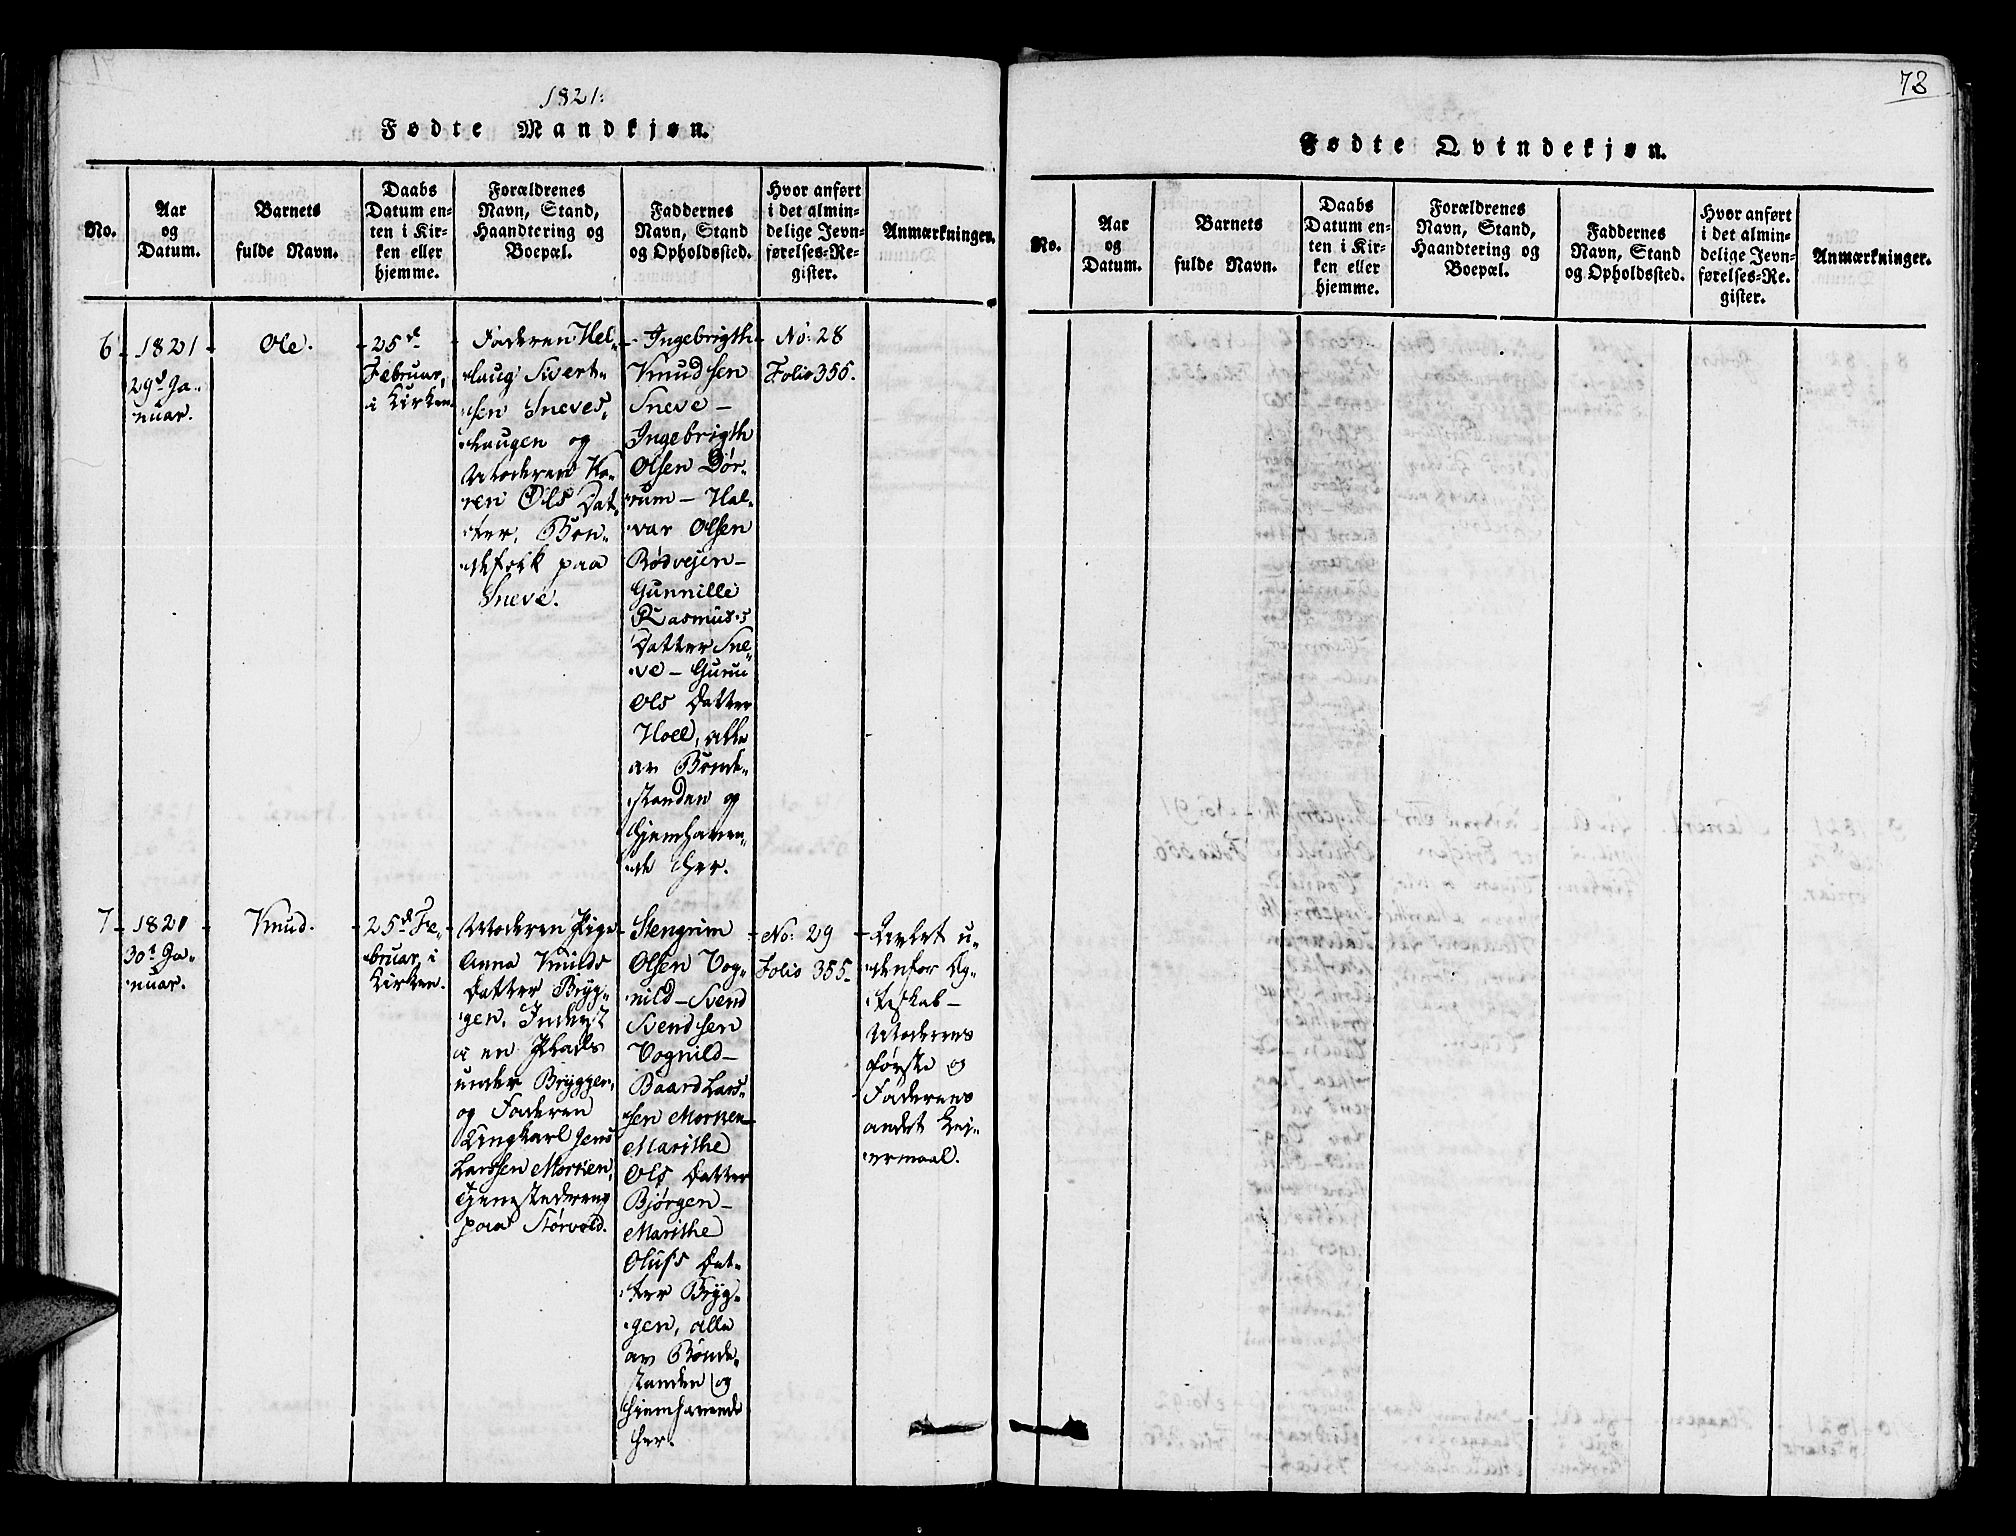 1821.
Fødte Mandkjøn.
No.
Aar
og
Datum.
Barnets
fulde Navn.
Daabs
Datum en-
ten i Kir-
ken eller
hjemme.
Forældrenes
Navn, Stand,
Haandtering og
Boepæl.
Faddernes
Navn, Stand
og Opholdssted.
Hvor anført
i det almin-
delige Jevn-
førelses-Re-
gister.
Anmærkninger.
6
1821
29d Ja-
nuar.
Ole.
25d
Februar,
i Kirken.
Faderen Hel-
laug Sivert-
sen Sneves-
haugen og
Moderen Ka-
ren Ols Dat-
ter, Bon-
defolk paa
Sneve.
Ingebrigth
Knudsen
Sneve –
Ingebrigth
Olsen Dør-
rum – Hal-
var Olsen
Rødvejen –
Gunnille
Rasmus-
Datter Sne-
ve – Guru
Ols Datter
Hoel, alle
av Bonde-
standen og
hjemhaven-
de her.
No: 28
Folio 355.
7
1821
30d Ja-
nuar.
Knud.
25d Fe-
bruar, i
Kirken.
Moderen Pige
Anna Knuds
Datter Bryg-
gen. Inderst
i en Plads
under Bryggen,
og Faderen
Ungkarl Jens
Larssen Morken,
Tjenestedreng
paa Størvold.
Stengrim
Olsen Vog-
nild – Svend
Svendsen
Vognild –
Baard Lars-
sen Morken –
Marithe
Ols Datter
Bjørgen –
Marithe
Olufs Dat-
ter Bryg-
gen, alle
av Bonde-
standen og
hjemhavende
her.
No: 29
Folio 355.
Avlet u-
denfor Æg-
teskab –
Moderens
første og
Faderens
andet Lei-
ermaal.
73
Fødte Qvindekjøn.
No.
Aar
og
Datum.
Barnets
fulde Navn.
Daabs
Datum en-
ten i Kir-
ken eller
hjemme.
Forældrenes
Navn, Stand,
Haandtering og
Boepæl.
Faddernes
Navn, Stand
og Opholdssted.
Hvor anført
i det almin-
delige Jevn-
førelses-Re-
gister.
Anmærkninger.